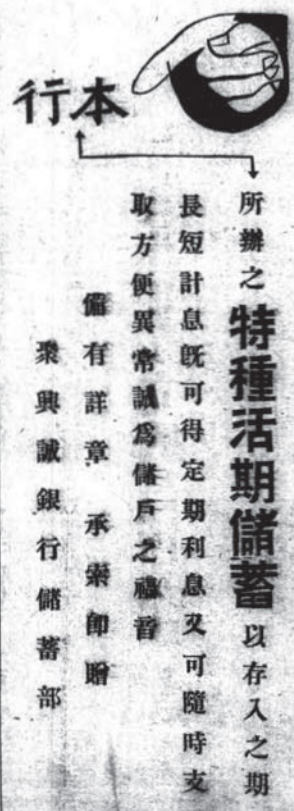 本行
所辦之特種活期儲蓄以存入之期
長短計息既可得定期利息又可隨時支
取方便異常誠爲儲戶之福音
備有詳章 承索即贈
聚興誠銀行儲蓄部